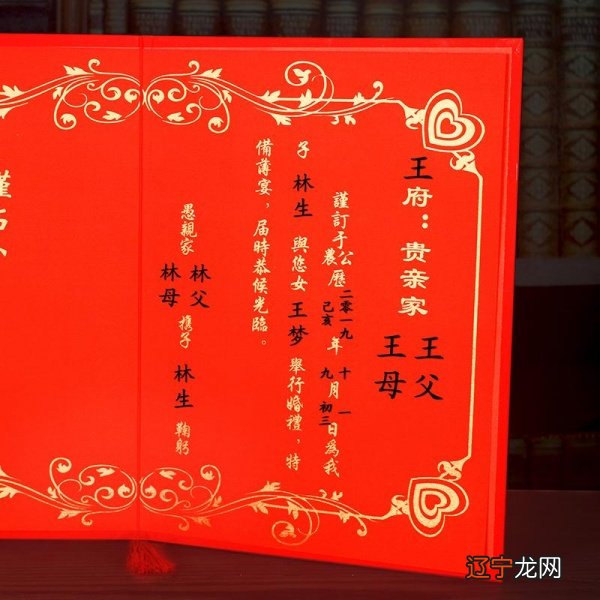 王府：贵亲家
王父
王母
謹訂于公歷二零一九年十月一日為我
農己亥九初三
子林生與您女王梦舉行婚禮，特
備薄宴，届時恭候光臨。
愚親家
林父
林母
携子林生鞠躬
辽宁龙网